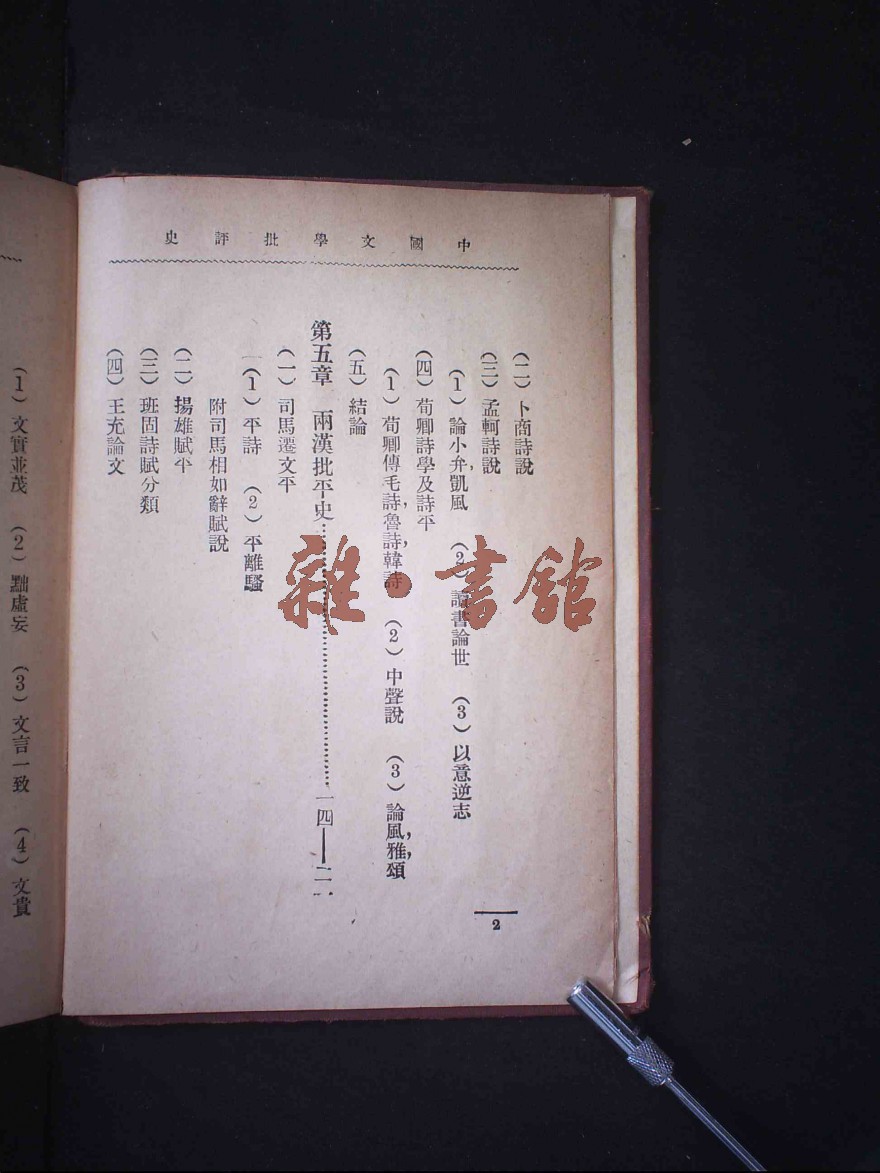 中國文學批評史
（二）卜商詩說
（三）孟軻詩說
（1）論小弁，凱風　（2）讀書論世　（3）以意逆志
（四）荀卿詩學及詩平
（1）荀卿傳毛詩，魯詩，韓詩　（2）中聲說　（3）論風，雅，頌
（五）結論
第五章　兩漢批平史…………一四——二一
（一）司馬遷文平
（1）平詩　（2）平離騷
附司馬相如辭賦說
（二）揚雄賦平
（三）班固詩賦分類
（四）王充論文
2
（1）文實並茂　（2）黜虛妄　（3）文言一致　（4）文貴
雜·書館